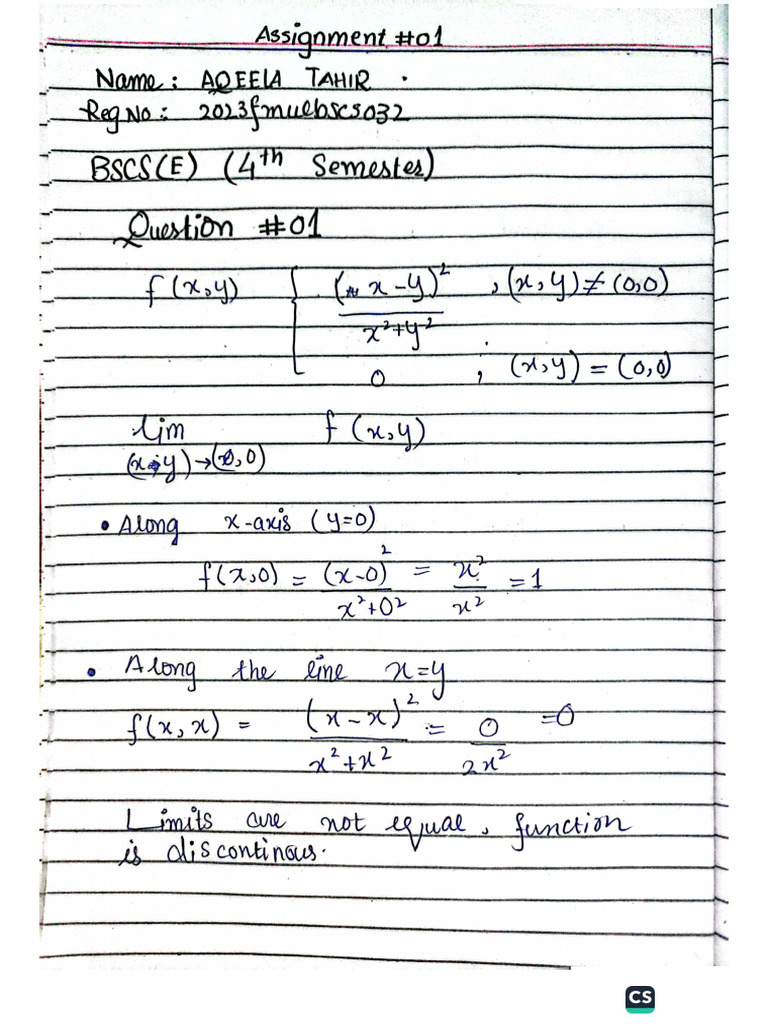 Assignment #01
Name: AQEELA TAHIR .
Reg No: 2023fmuebscs032
BSCS(E) (4th Semester)
Question #01
f(x,y) { (x-y)² / x²+y² , (x,y)≠(0,0)
0 ; (x,y) = (0,0)
lim f(x,y)
(x,y)→(0,0)
• Along x-axis (y=0)
f(x,0) = (x-0)² / x²+0² = x² / x² = 1
• Along the line x=y
f(x,x) = (x-x)² / x²+x² = 0 / 2x² =0
Limits are not equal, function
is discontinous.
CS